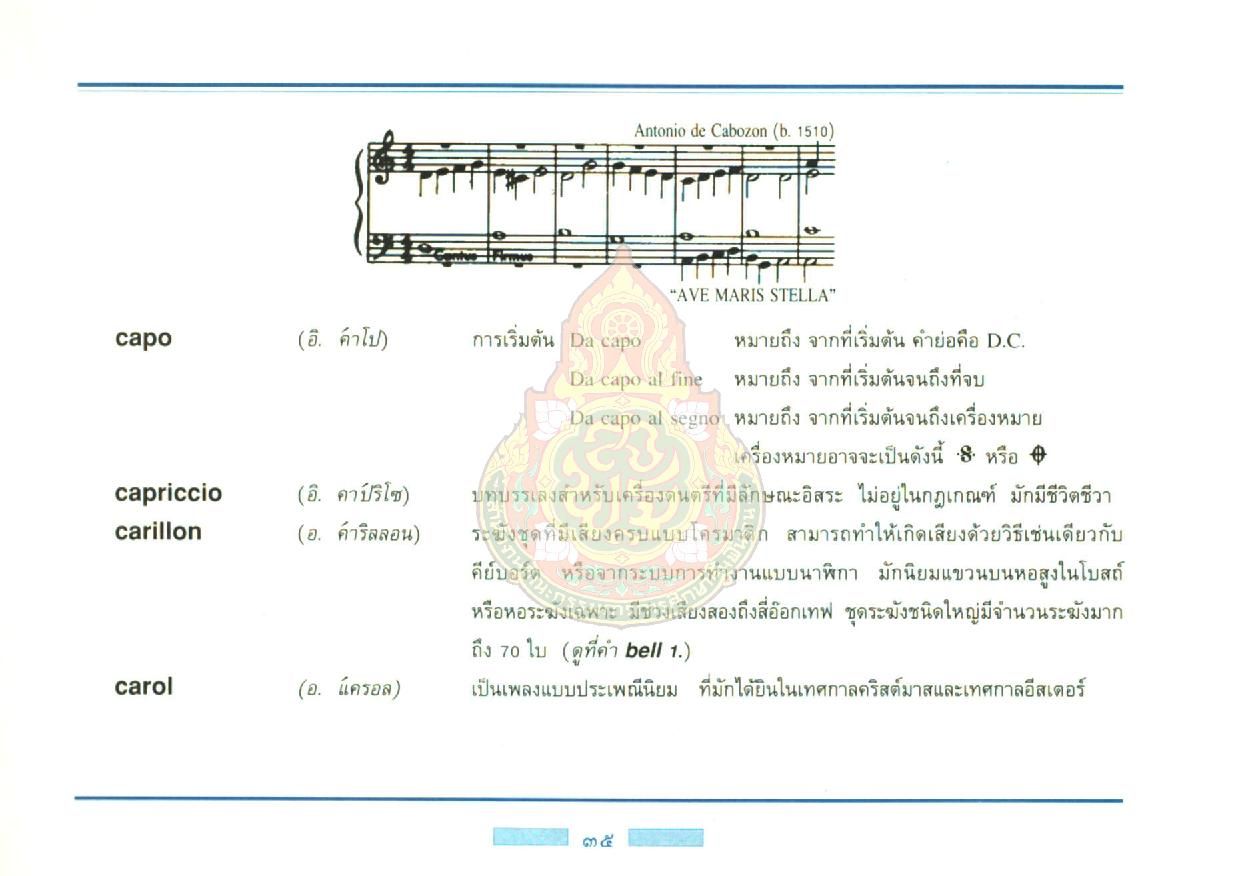 Antonio de Cabozon (b. 1510)
Cantus Firmus
“AVE MARIS STELLA”
capo (อิ. ค้าโป) การเริ่มต้น Da capo หมายถึง จากที่เริ่มต้น คำย่อคือ D.C.
Da capo al fine หมายถึง จากที่เริ่มต้นจนถึงที่จบ
Da capo al segno หมายถึง จากที่เริ่มต้นจนถึงเครื่องหมาย
เครื่องหมายอาจจะเป็นดังนี้ 𝄋 หรือ 𝄌
capriccio (อิ. คาปริโซ) บทบรรเลงสำหรับเครื่องดนตรีที่มีลักษณะอิสระ ไม่อยู่ในกฎเกณฑ์ มักมีชีวิตชีวา
carillon (อ. ค้าริลลอน) ระฆังชุดที่มีเสียงครบแบบโครมาติก สามารถทำให้เกิดเสียงด้วยวิธีเช่นเดียวกับ
คีย์บอร์ด หรือจากระบบการทำงานแบบนาฬิกา มักนิยมแขวนบนหอสูงในโบสถ์
หรือหอระฆังเฉพาะ มีช่วงเสียงสองถึงสี่อ๊อกเทฟ ชุดระฆังชนิดใหญ่มีจำนวนระฆังมาก
ถึง 70 ใบ (ดูที่คำ bell 1.)
carol (อ. แค้รอล) เป็นเพลงแบบประเพณีนิยม ที่มักได้ยินในเทศกาลคริสต์มาสและเทศกาลอีสเตอร์
๓๕